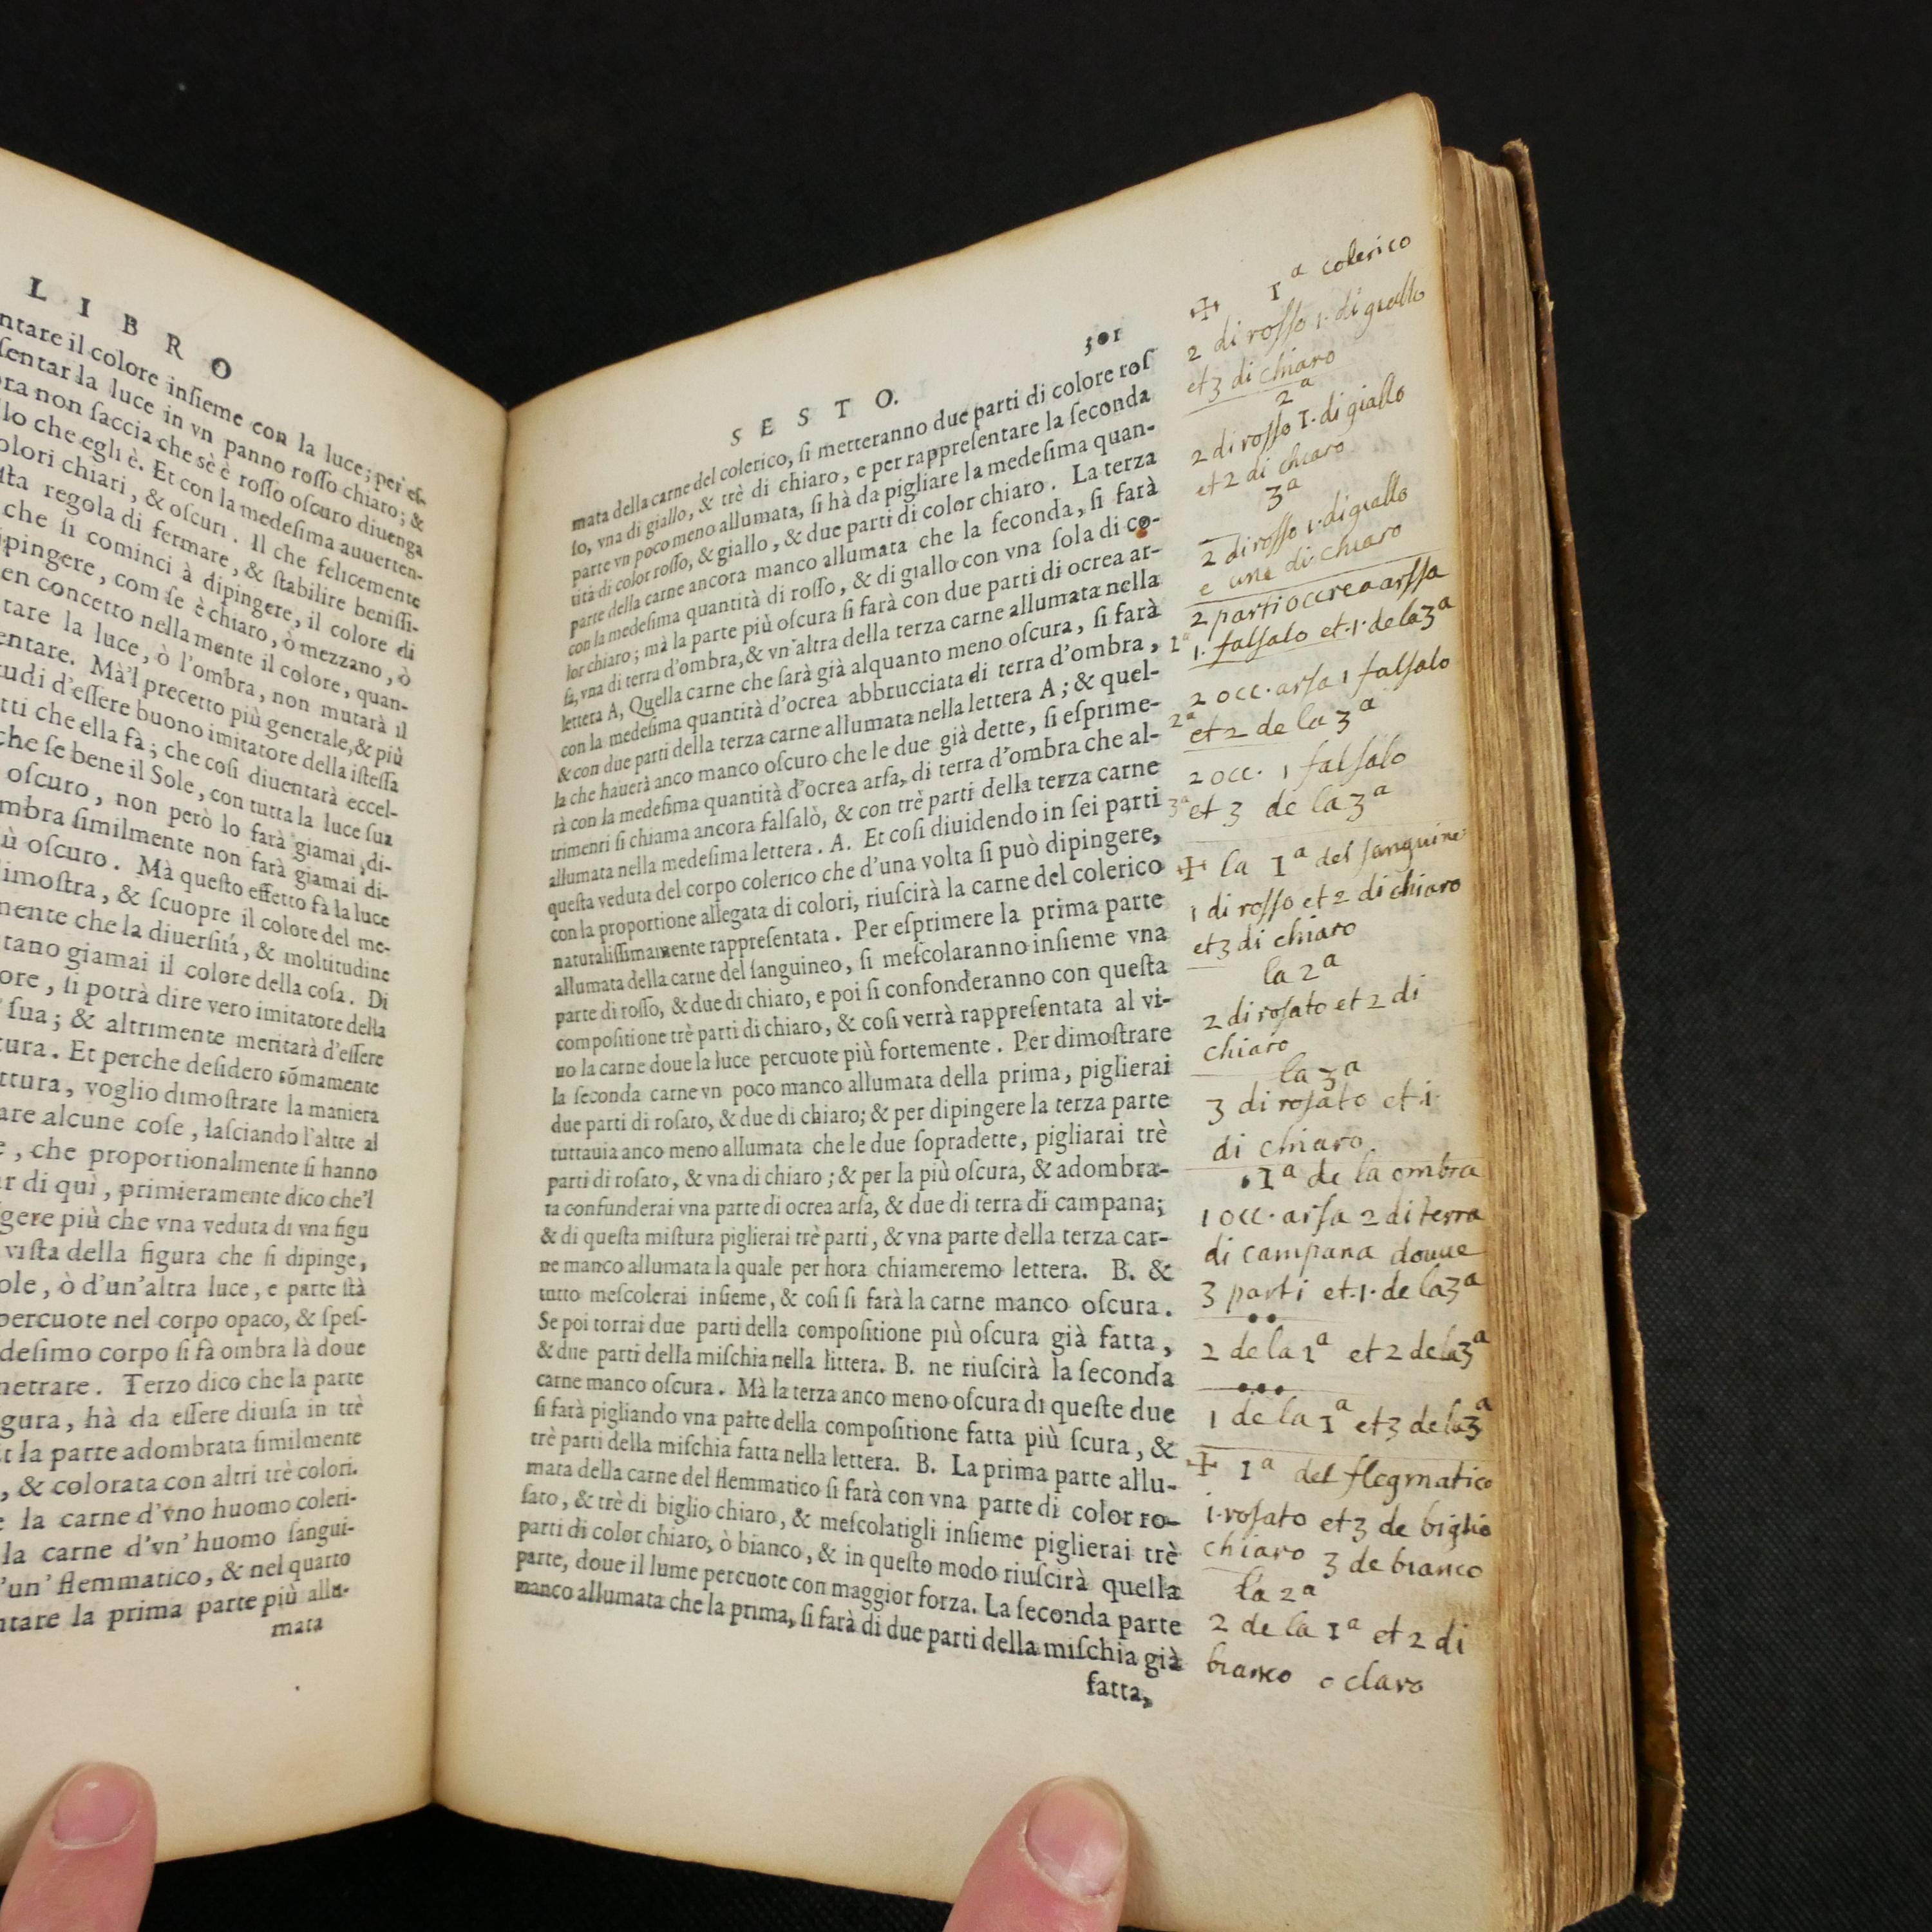 LIBRO
ntare il colore inſieme con la luce; per eſ-
ſentar la luce in vn panno roſſo chiaro; &
ora non faccia che sè è roſſo oſcuro diuenga
llo che egli è. Et con la medeſima auuerten-
olori chiari, & oſcuri. Il che felicemente
ſta regola di fermare, & ſtabilire beniſſi-
che ſi cominci à dipingere, il colore di
pingere, com ſe è chiaro, ò mezzano, ò
en concetto nella mente il colore, quan-
tare la luce, ò l'ombra, non mutarà il
entare. Mà'l precetto più generale, & più
tudi d'eſſere buono imitatore della iſteſſa
tti che ella fà; che coſi diuentarà eccel-
che ſe bene il Sole, con tutta la luce ſua
oſcuro, non però lo farà giamai di-
mbra ſimilmente non farà giamai di-
ù oſcuro. Mà queſto effetto fà la luce
imoſtra, & ſcuopre il colore del me-
nente che la diuerſità, & moltitudine
tano giamai il colore della coſa. Di
ore, ſi potrà dire vero imitatore della
ſua; & altrimente meritarà d'eſſere
tura. Et perche deſidero sōmamente
ttura, voglio dimoſtrare la maniera
are alcune coſe, laſciando l'altre al
e, che proportionalmente ſi hanno
r di quì, primieramente dico che'l
gere più che vna veduta di vna figu
viſta della figura che ſi dipinge,
ole, ò d'un'altra luce, e parte ſtà
percuote nel corpo opaco, & ſpeſ-
deſimo corpo ſi fà ombra là doue
netrare. Terzo dico che la parte
gura, hà da eſſere diuiſa in trè
t la parte adombrata ſimilmente
, & colorata con altri trè colori.
e la carne d'vno huomo coleri-
la carne d'vn' huomo ſangui-
'un' flemmatico, & nel quarto
ntare la prima parte più allu-
mata
SESTO. 301
mata della carne del colerico, ſi metteranno due parti di colore roſ
ſo, vna di giallo, & trè di chiaro, e per rappreſentare la ſeconda
parte vn poco meno allumata, ſi hà da pigliare la medeſima quan-
tità di color roſſo, & giallo, & due parti di color chiaro. La terza
parte della carne ancora manco allumata che la ſeconda, ſi farà
con la medeſima quantità di roſſo, & di giallo con vna ſola di co-
lor chiaro; mà la parte più oſcura ſi farà con due parti di ocrea ar-
ſa, vna di terra d'ombra, & vn'altra della terza carne allumata nella
lettera A, Quella carne che ſarà già alquanto meno oſcura, ſi farà
con la medeſima quantità d'ocrea abbrucciata di terra d'ombra,
& con due parti della terza carne allumata nella lettera A; & quel-
la che hauerà anco manco oſcuro che le due già dette, ſi eſprime-
rà con la medeſima quantità d'ocrea arſa, di terra d'ombra che al-
trimenti ſi chiama ancora falſalò, & con trè parti della terza carne
allumata nella medeſima lettera. A. Et coſi diuidendo in ſei parti
queſta veduta del corpo colerico che d'una volta ſi può dipingere,
con la proportione allegata di colori, riuſcirà la carne del colerico
naturaliſſimamente rappreſentata. Per eſprimere la prima parte
allumata della carne del ſanguineo, ſi meſcolaranno inſieme vna
parte di roſſo, & due di chiaro, e poi ſi confonderanno con queſta
compoſitione trè parti di chiaro, & coſi verrà rappreſentata al vi-
uo la carne doue la luce percuote più fortemente. Per dimoſtrare
la ſeconda carne vn poco manco allumata della prima, piglierai
due parti di roſato, & due di chiaro; & per dipingere la terza parte
tuttauia anco meno allumata che le due ſopradette, pigliarai trè
parti di roſato, & vna di chiaro; & per la più oſcura, & adombra-
ta confunderai vna parte di ocrea arſa, & due di terra di campana;
& di queſta miſtura piglierai trè parti, & vna parte della terza car-
ne manco allumata la quale per hora chiameremo lettera. B. &
tutto meſcolerai inſieme, & coſi ſi farà la carne manco oſcura.
Se poi torrai due parti della compoſitione più oſcura già fatta,
& due parti della miſchia nella littera. B. ne riuſcirà la ſeconda
carne manco oſcura. Mà la terza anco meno oſcura di queſte due
ſi farà pigliando vna parte della compoſitione fatta più ſcura, &
trè parti della miſchia fatta nella lettera. B. La prima parte allu-
mata della carne del flemmatico ſi farà con vna parte di color ro-
ſato, & trè di biglio chiaro, & meſcolatigli inſieme piglierai trè
parti di color chiaro, ò bianco, & in queſto modo riuſcirà quella
parte, doue il lume percuote con maggior forza. La ſeconda parte
manco allumata che la prima, ſi farà di due parti della miſchia già
fatta,
✠ 1ª colerico
2 di roſſo 1· di giallo
et 3 di chiaro
2ª
2 di roſſo 1· di giallo
et 2 di chiaro
3ª
2 di roſſo 1· di giallo
e une di chiaro
2 parti occrea arſſa
1ª 1· falſalo et ·1· de la 3ª
2 occ· arſa 1 falſalo
2ª et 2 de la 3ª
2 occ· 1 falſalo
3ª et 3 de la 3ª
✠ la 1ª del ſanguine
1 di roſſo et 2 di chiaro
et 3 di chiaro
la 2ª
2 di roſato et 2 di
chiaro
la 3ª
3 di roſato et 1·
di chiaro
• 1ª de la ombra
1 occ· arſa 2 di terra
di campana doue
3 parti et ·1· de la 3ª
••
2 de la 1ª et 2 de la 3ª
•••
1 de la 1ª et 3 de la 3ª
✠ 1ª del flegmatico
1· roſato et 3 de biglio
chiaro 3 de branco
la 2ª
2 de la 1ª et 2 di
branco o claro